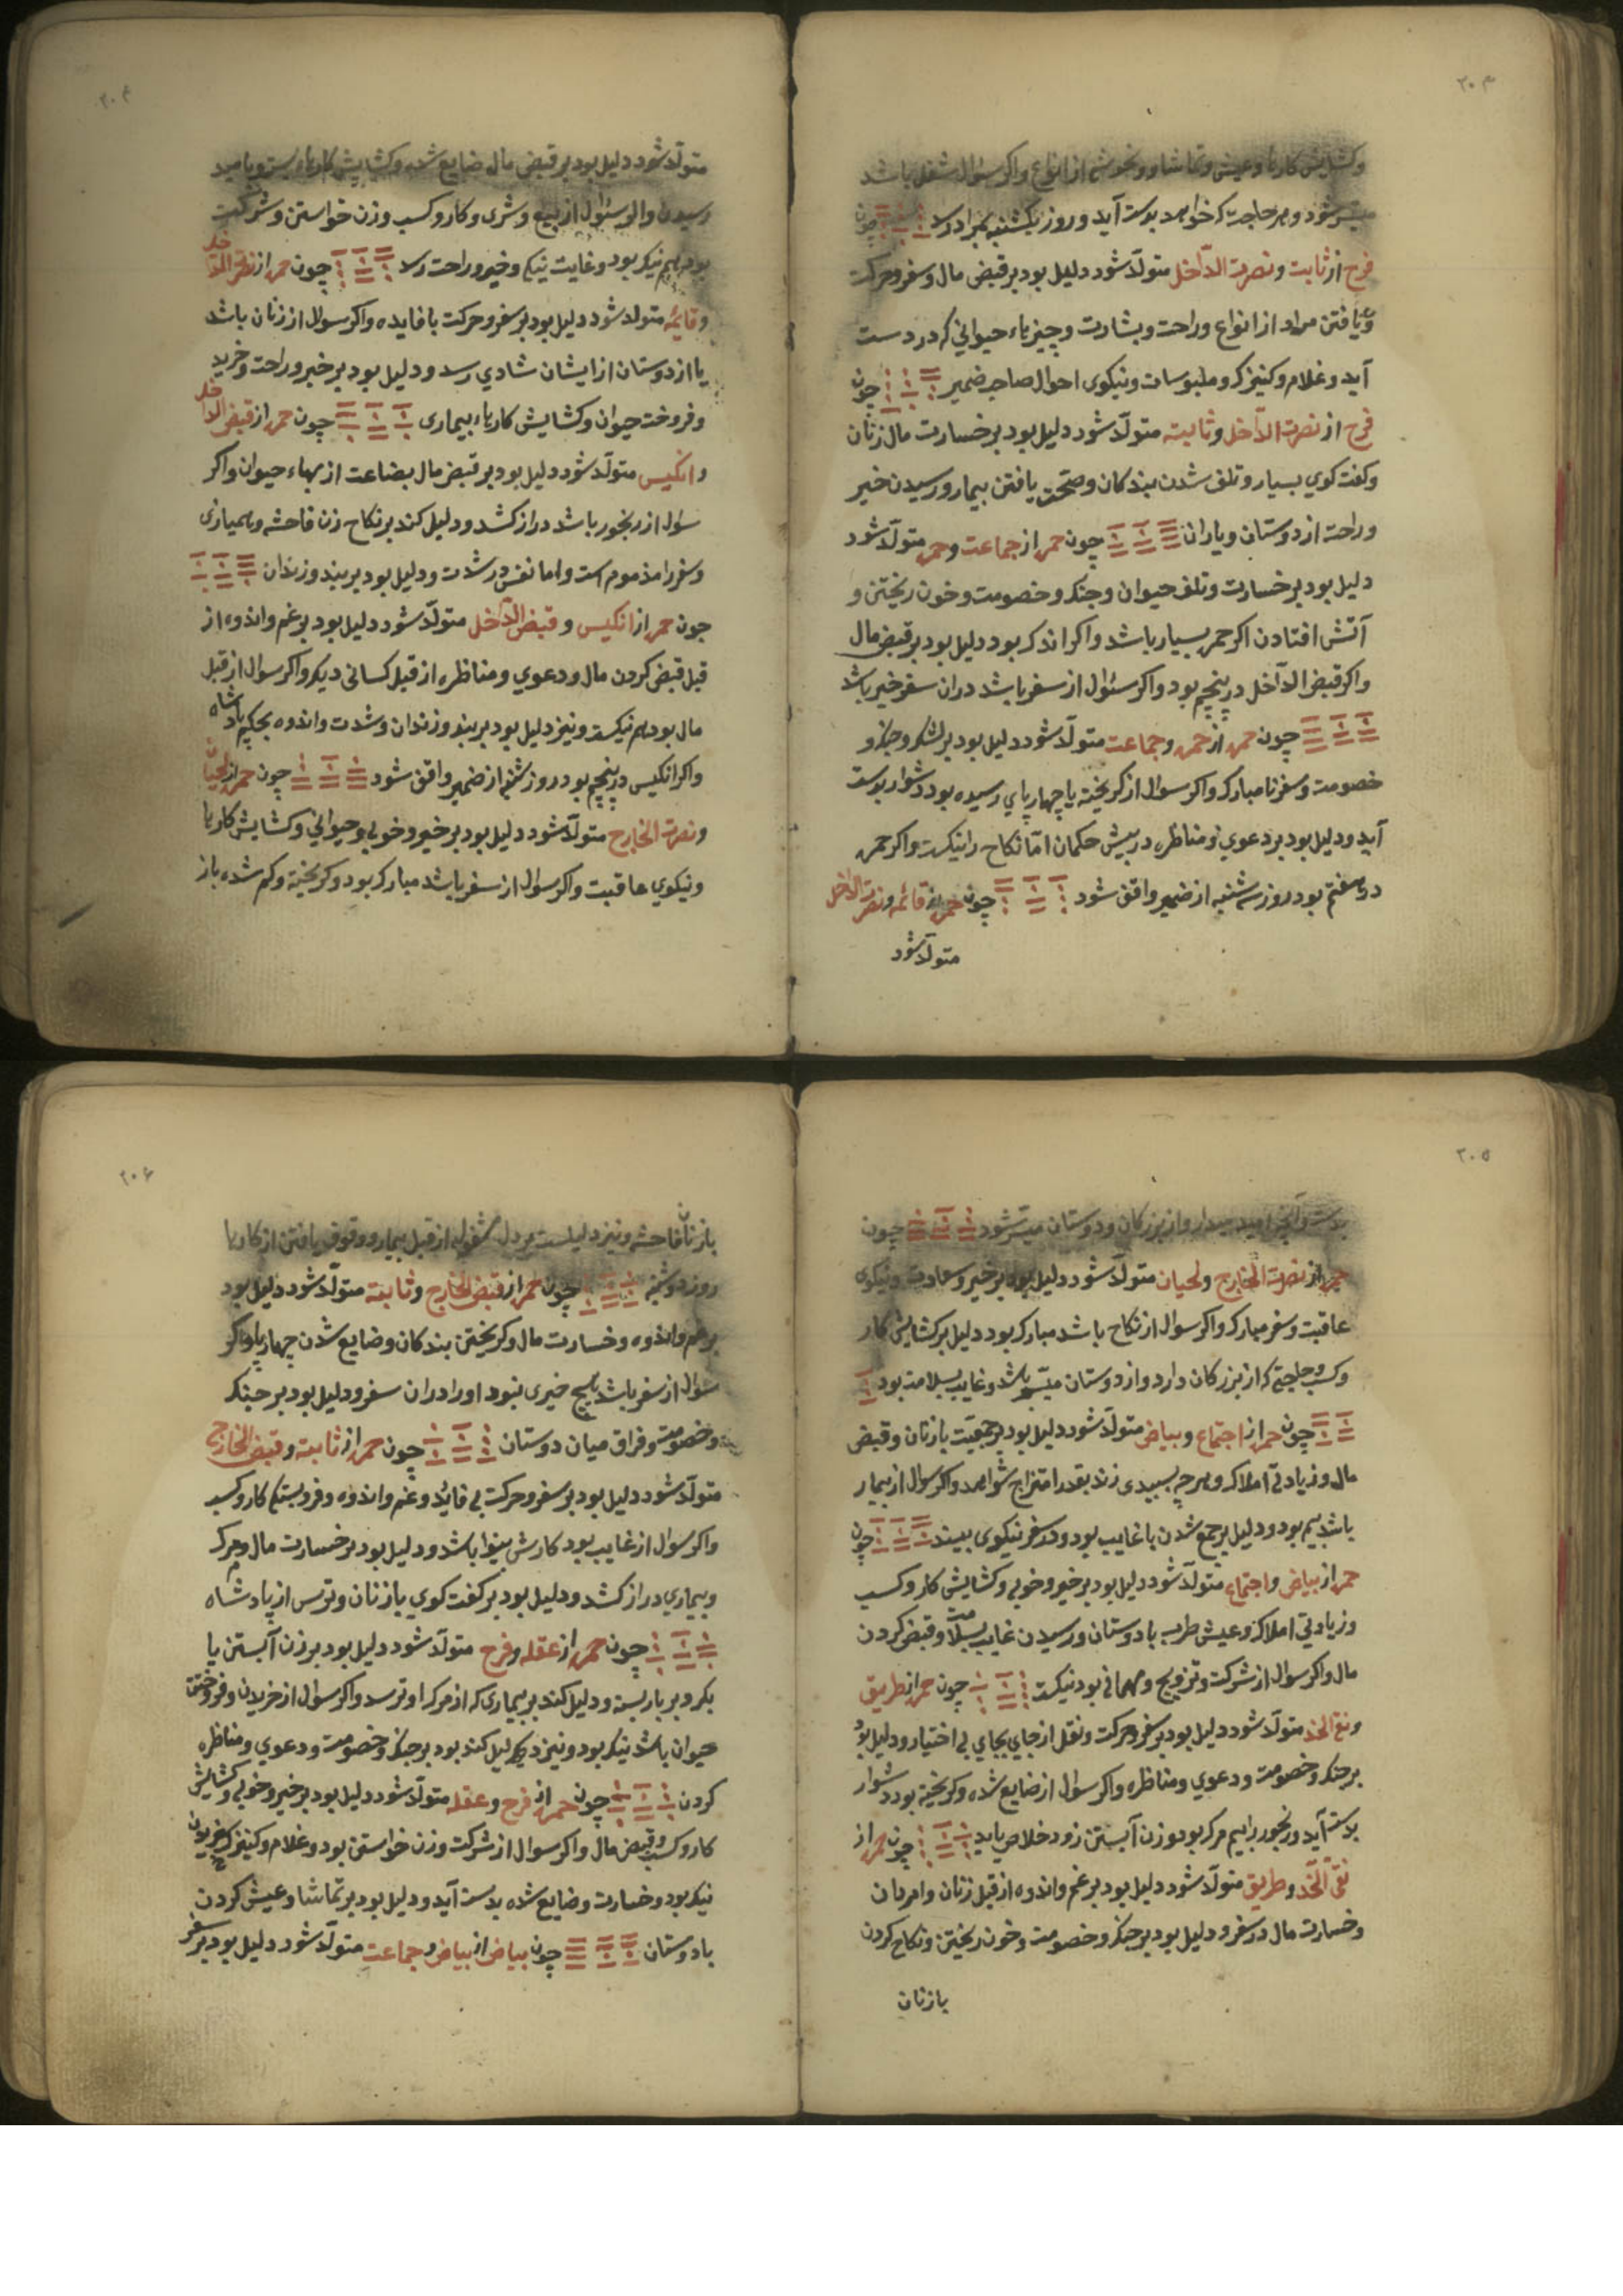 ۲۰۳
وکشایش کارها وعیش وتماشا و از انواع واکر سؤال شغل باشد
میسر شود وهر حاجت که خواهد بدست آید و روز یکشنبه بمراد رسد چون
فرح از ثابت و نصرت الداخل متولد شود دلیل بود بر قبض مال و سفر وحرکت
ویافتن مراد از انواع وراحت و بشارت و چیزهاء حیوانی که در دست
آید وغلام وکنیزک و ملبوسات ونیکوی احوال صاحب ضمیر چون
فرح از نصرت الداخل وثابته متولد شود دلیل بود بر خسارت مال زنان
وکفت کوی بسیار وتلف شدن بندکان وصحت یافتن بیمار ورسیدن خبر
وراحت از دوستان ویاران چون حمره از جماعت وحمره متولد شود
دلیل بود بر خسارت وتلف حیوان وجنک وخصومت وخون ریختن و
آتش افتادن اکر حمره بسیار باشد واکر اندک بود دلیل بود بر قبض مال
واکر قبض الداخل در پنجم بود واکر سئوال از سفر باشد در ان سفر خیر باشد
چون حمره از حمره وجماعت متولد شود دلیل بود بر لشکر وجنک و
خصومت وسفر نامبارک واکر سوال از کریخته یا چهارپای رسیده بود دشوار بدست
آید ودلیل بود بر دعوی ومناظره در پیش حکمان اما نکاح را نیکست واکر حمره
در هفتم بود روز سه شنبه از ضمیر واقف شود چون حمره از قائمه ونصرت الداخل
متولد شود
۲۰۴
متولد شود دلیل بود بر قبض مال ضایع شده وکشایش کارهاء بسته وبامید
رسیدن واکر سئوال از بیع وشری وکار وکسب وزن خواستن وشرکت
بود هم نیک بود وغایت نیکی وخیر وراحت رسد چون حمره از نصرت الداخل
وقائمه متولد شود دلیل بود بر سفر وحرکت با فایده واکر سوال از زنان باشد
یا از دوستان از ایشان شادی رسد ودلیل بود بر خیر وراحت وخرید
وفروخت حیوان وکشایش کارهاء بیماری چون حمره از قبض الداخل
وانکیس متولد شود دلیل بود بر قبض مال بضاعت از بهاء حیوان واکر
سؤل از رنجور باشد دراز کشد ودلیل کند بر نکاح زن فاحشه وبمیاری
وسفر را مذموم است واما نفس در شدت ودلیل بود بر بند وزندان
چون حمره از انکیس و قبض الداخل متولد شود دلیل بود بر غم واندوه از
قبل قبض کردن مال ودعوی ومناظره از قبل کسانی دیکر واکر سوال از قبل
مال بود هم نیکست ونیز دلیل بود بر بند وزندان وشدت واندوه بحکم پادشاه
واکر انکیس در پنجم بود روز شنبه از ضمیر واقف شود چون حمره از لحیان
ونصرت الخارج متولد شود دلیل بود بر خیر وخوبی وحیوانی وکشایش کارها
ونیکوی عاقبت واکر سوال از سفر باشد مبارک بود وکریخته وکم شده باز
۲۰۵
بدست آید وآنچه امید میدارد از بزرکان ودوستان میسر شود چون
حمره از نصرت الخارج ولحیان متولد شود دلیل بود بر خیر وسعادت ونیکوی
عاقبت وسفر مبارک واکر سوال از نکاح باشد مبارک بود دلیل بر کشایش کار
وکسب وحاجتی که از بزرکان دارد واز دوستان میسر باشد وغایب بسلامت بود
چون حمره از اجتماع وبیاض متولد شود دلیل بود بر جمعیت با زنان وقبض
مال وزیادتی املاک وهرچه بسپیدی زند بقدر امتزاج شواهد واکر سوال از بیمار
باشد بیم بود ودلیل بر جمع شدن با غایب بود ودر سفر نیکوی بیند چون
حمره از بیاض واجتماع متولد شود دلیل بود بر خیر وخوبی وکشایش کار وکسب
وزیادتی املاک وعیش طرب با دوستان ورسیدن غایب بسلامت وقبض کردن
مال واکر سوال از شرکت وتزویج ومهمانی بود نیکست چون حمره از طریق
ونقی الخد متولد شود دلیل بود بر سفر وحرکت ونقل از جای بجای بی اختیار ودلیل بود
بر جنک وخصومت ودعوی ومناظره واکر سؤال از ضایع شده وکریخته بود دشوار
بدست آید ورنجور را بیم مرک بود وزن آبستن زود خلاص یابد چون حمره از
نقی الخد وطریق متولد شود دلیل بود بر غم واندوه از قبل زنان وامردان
وخسارت مال در سفر ودلیل بود بر جنک وخصومت وخون ریختن ونکاح کردن
با زنان
۲۰۶
با زنان فاحشه ونیز دلیلست بر دل مشغولی از قبل بیمار ووقوف یافتن از کارها
روز دوشنبه چون حمره از قبض الخارج وثابته متولد شود دلیل بود
بر غم واندوه وخسارت مال وکریختن بندکان وضایع شدن چهارپا واکر
سؤال از سفر باشد هیچ خیری نبود او را در ان سفر ودلیل بود بر جنک
وخصومت وفراق میان دوستان چون حمره از ثابته وقبض الخارج
متولد شود دلیل بود بر سفر وحرکت بی فائده وغم واندوه وفروبستکی کار وکسب
واکر سوال از غایب بود کارش بینوا باشد ودلیل بود بر خسارت مال ومرک
وبیماری دراز کشد ودلیل بود بر کفت کوی با زنان وترس از پادشاه
چون حمره از عقله وفرح متولد شود دلیل بود بر زن آبستن یا
بکر وبر بار بسته ودلیل کند بر بیماری که از مرک او ترسد واکر سؤال از خریدن وفروختن
حیوان باشد نیک بود ونیز دلیل کند بود بر جنک وخصومت ودعوی ومناظره
کردن چون حمره از فرح وعقله متولد شود دلیل بود بر خیر وخوبی وکشایش
کار وکسب وقبض مال واکر سوال از شرکت وزن خواستن بود وغلام وکنیزک خریدن
نیک بود وخسارت وضایع شده بدست آید ودلیل بود بر تماشا وعیش کردن
با دوستان چون بیاض از بیاض وجماعت متولد شود دلیل بود بر سفر